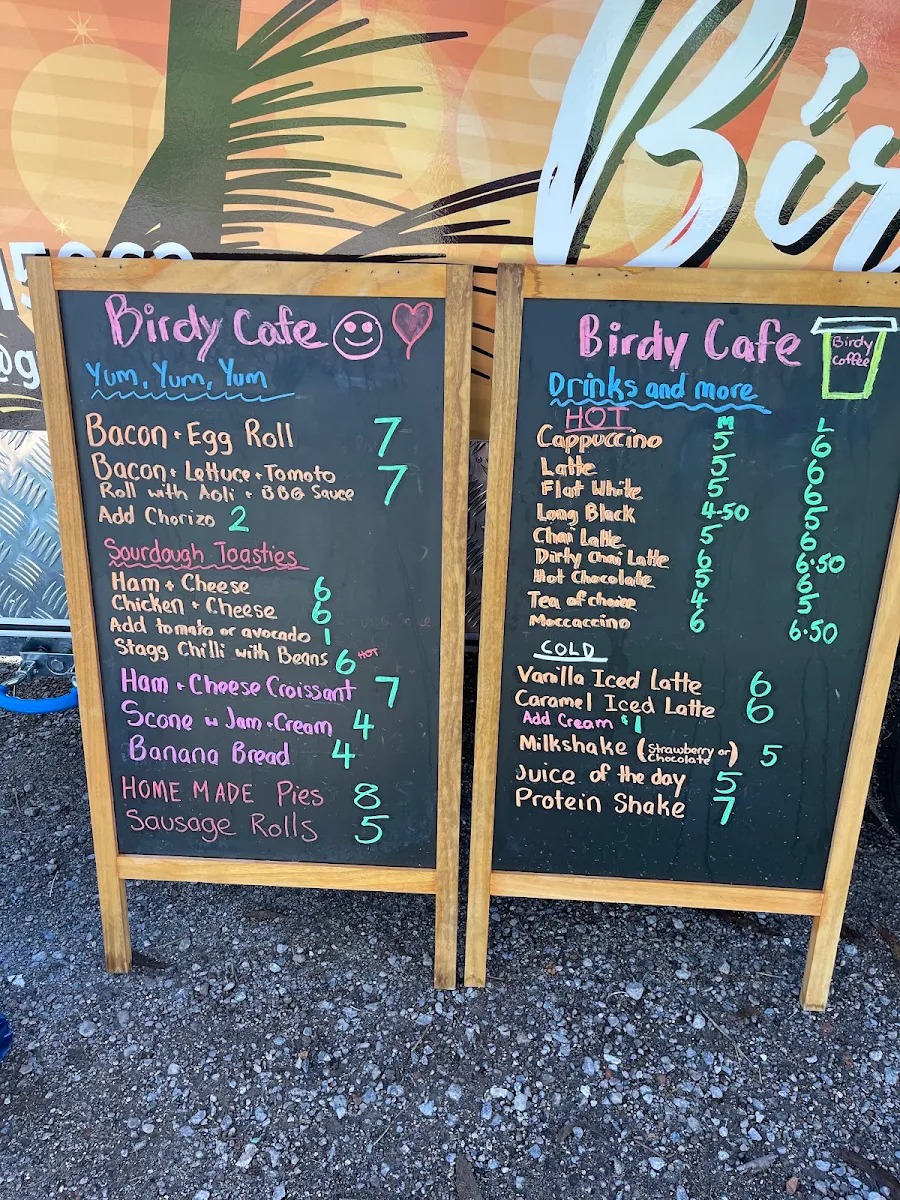 Bir
@g
Birdy Cafe
Yum, Yum, Yum
Bacon + Egg Roll 7
Bacon + Lettuce + Tomato
Roll with Aoli + BBQ Sauce 7
Add Chorizo 2
Sourdough Toasties
Ham + Cheese 6
Chicken + Cheese 6
Add tomato or avocado 1
Stagg Chilli with Beans 6 HOT
Ham + Cheese Croissant 7
Scone w Jam + Cream 4
Banana Bread 4
HOME MADE Pies 8
Sausage Rolls 5
Birdy Cafe
Birdy
Coffee
Drinks and more
HOT M L
Cappuccino 5 6
Latte 5 6
Flat White 5 6
Long Black 4.50 5
Chai Latte 5 6
Dirty Chai Latte 6 6.50
Hot Chocolate 5 6
Tea of choice 4 5
Moccaccino 6 6.50
COLD
Vanilla Iced Latte 6
Caramel Iced Latte 6
Add Cream $1
Milkshake (Strawberry or Chocolate) 5
Juice of the day 5
Protein Shake 7